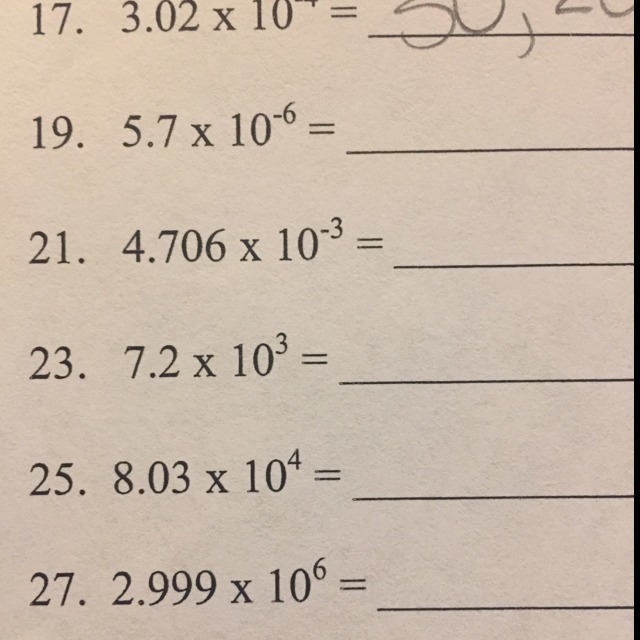 17. 3.02 x 10⁴ = 30,20
19. 5.7 x 10⁻⁶ =
21. 4.706 x 10⁻³ =
23. 7.2 x 10³ =
25. 8.03 x 10⁴ =
27. 2.999 x 10⁶ =